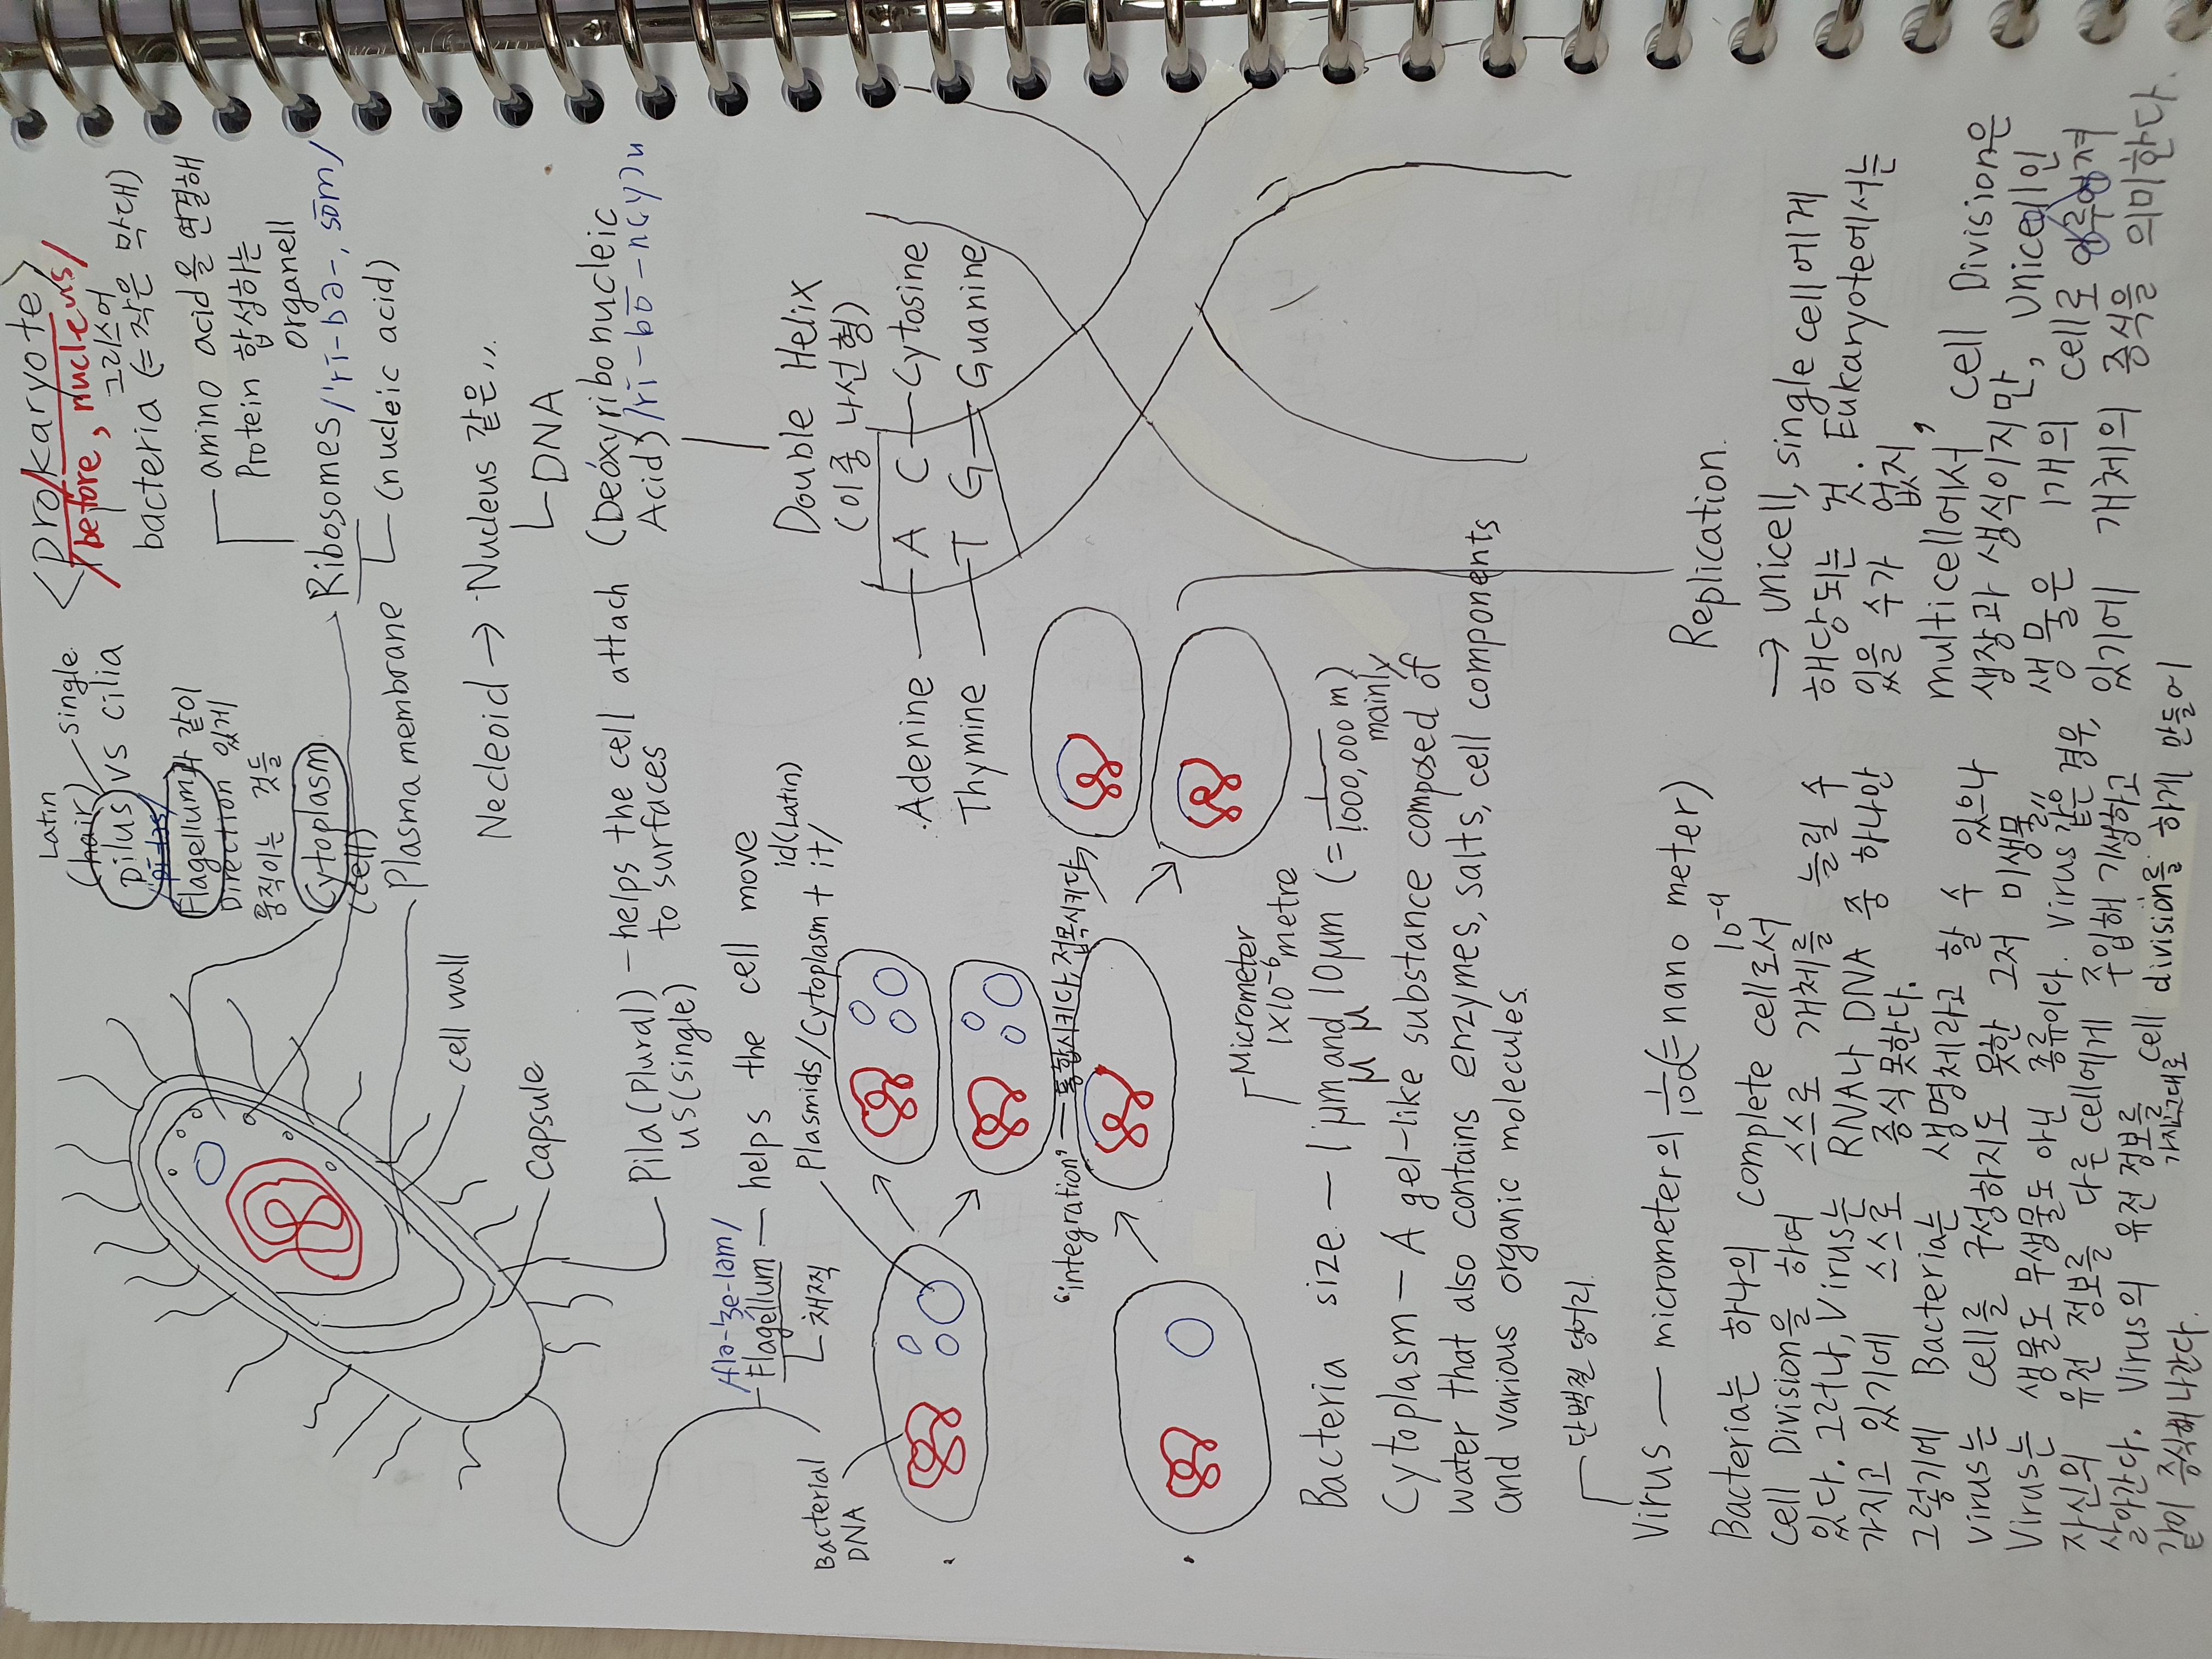 <Prokaryote>
/before, nucleus/
그리스어
bacteria (= 작은 막대)
amino acid을 연결해
Protein 합성하는
organell
Ribosomes /'rī-bə-, sōm/
(nucleic acid)
Latin
(hair) single
pilus vs cilia
Flagellum과 같이
Direction 있게
움직이는 것들
Cytoplasm
(cell)
Plasma membrane
cell wall
Capsule
Necleoid → Nucleus 같은,,
DNA
(Deoxyribonucleic
Acid) /rī-bō-n(y)u
Pila (plural) - helps the cell attach
us (single) to surfaces
/flə-'ʒe-ləm/
Flagellum — helps the cell move
채찍
id (latin)
Plasmids/Cytoplasm + it/
Bacterial
DNA
"integration" — 통합시키다, 접목시키다
Double Helix
(이중 나선형)
Adenine — A C — Cytosine
Thymine — T G — Guanine
Replication
→ unicell, single cell에게
해당되는 것. Eukaryote에서는
있을 수가 없지
multicell에서, cell Division은
생장과 생식이지만, Unicell인
생물은 1개의 cell로
있기에 개체의 증식을 의미한다.
Micrometer
1×10⁻⁶ metre
Bacteria size — 1μm and 10μm (= 1/1000,000 m)
μ μ
mainly
Cytoplasm — A gel-like substance composed of
water that also contains enzymes, salts, cell components
and various organic molecules.
단백질 덩어리
Virus — micrometer의 (= nano meter)
10⁻⁹
Bacteria는 하나의 complete cell로서
Cell Division을 하여 스스로 개체를 늘릴 수
있다. 그러나, Virus는 RNA나 DNA 중 하나만
가지고 있기에 스스로 증식 못한다.
그렇기에 Bacteria는 생명체라고 할 수 있으나
Virus는 cell를 구성하지도 못한 그저 미생물,,
Virus는 생물도 무생물도 아닌 종류이다. Virus 같은 경우,
자신의 유전 정보를 다른 cell에게 주입해 기생하고
살아간다. Virus의 유전 정보를 cell division을 하게 만들어
가진고대로
같이 증식해나간다.